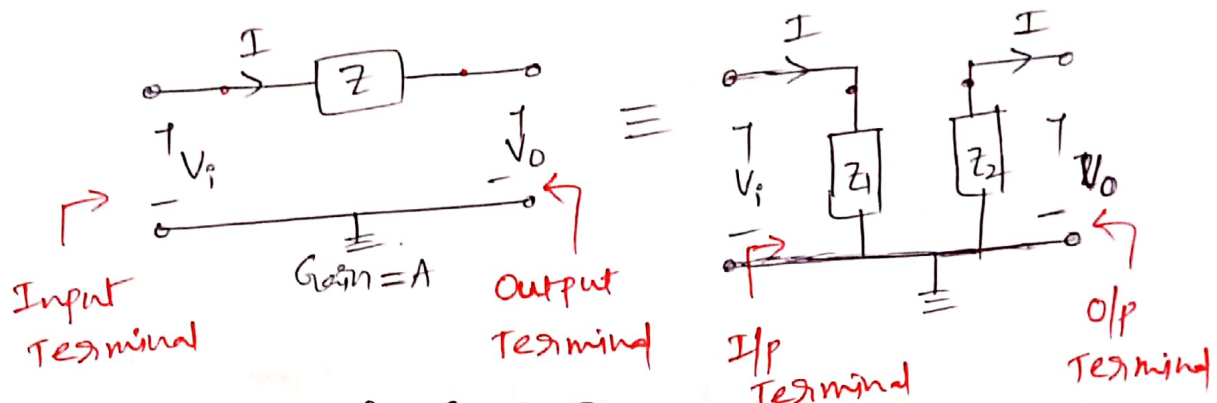 I
Z
Vi
Vo
Gain = A
Input
Terminal
Output
Terminal
≡
I
I
Z1
Z2
Vi
Vo
I/p
Terminal
O/p
Terminal